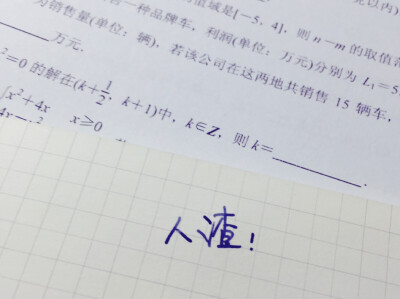 值域是[-5，4]，则 n-m 的取值范
一种品牌车，利润(单位：万元)分别为 L₁=5
为销售量(单位：辆)，若该公司在这两地共销售 15 辆车，
____万元.
²=0 的解在(k+1/2，k+1)中，k∈Z，则 k=____.
x²+4x x≥0
人渣！